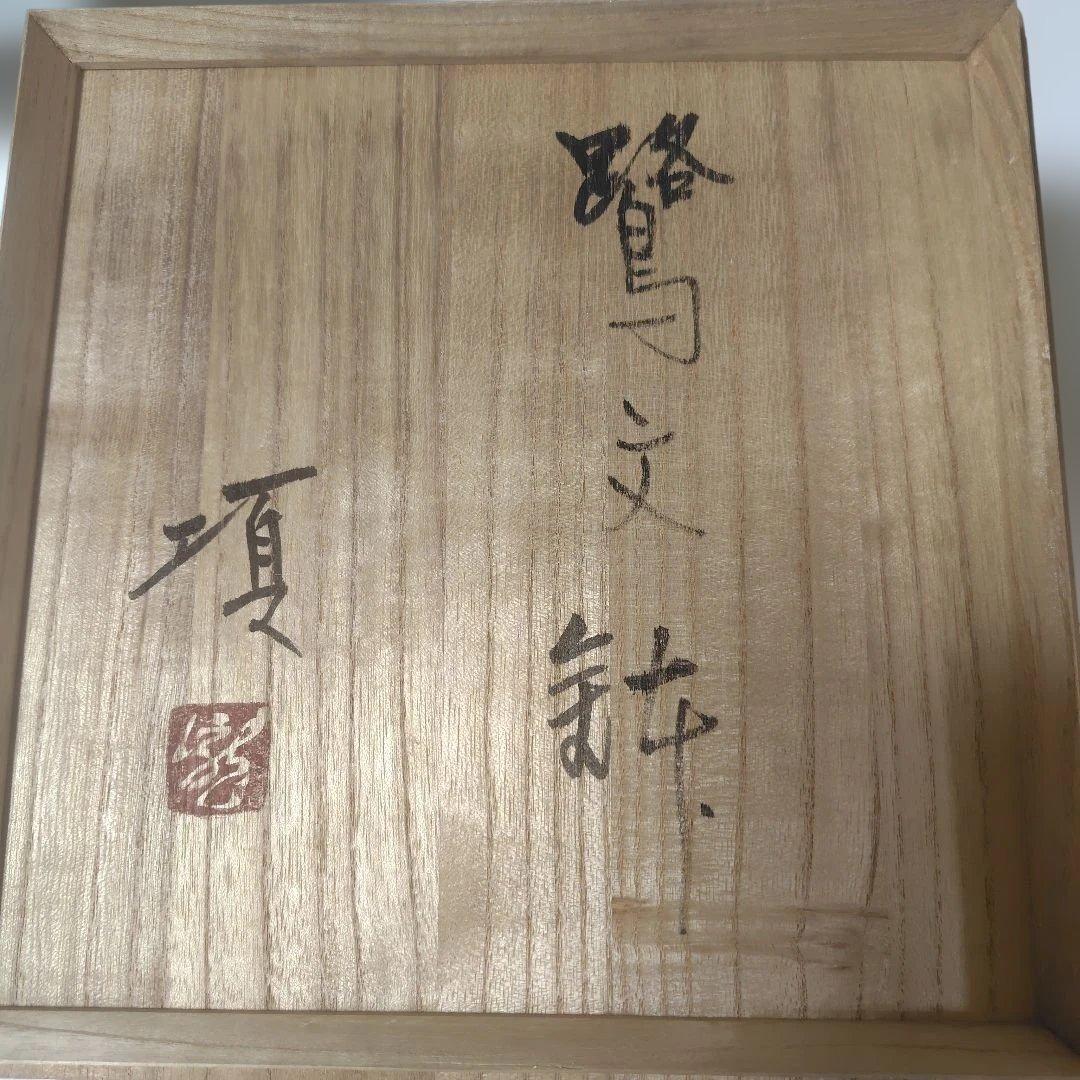 鷺文鉢
項